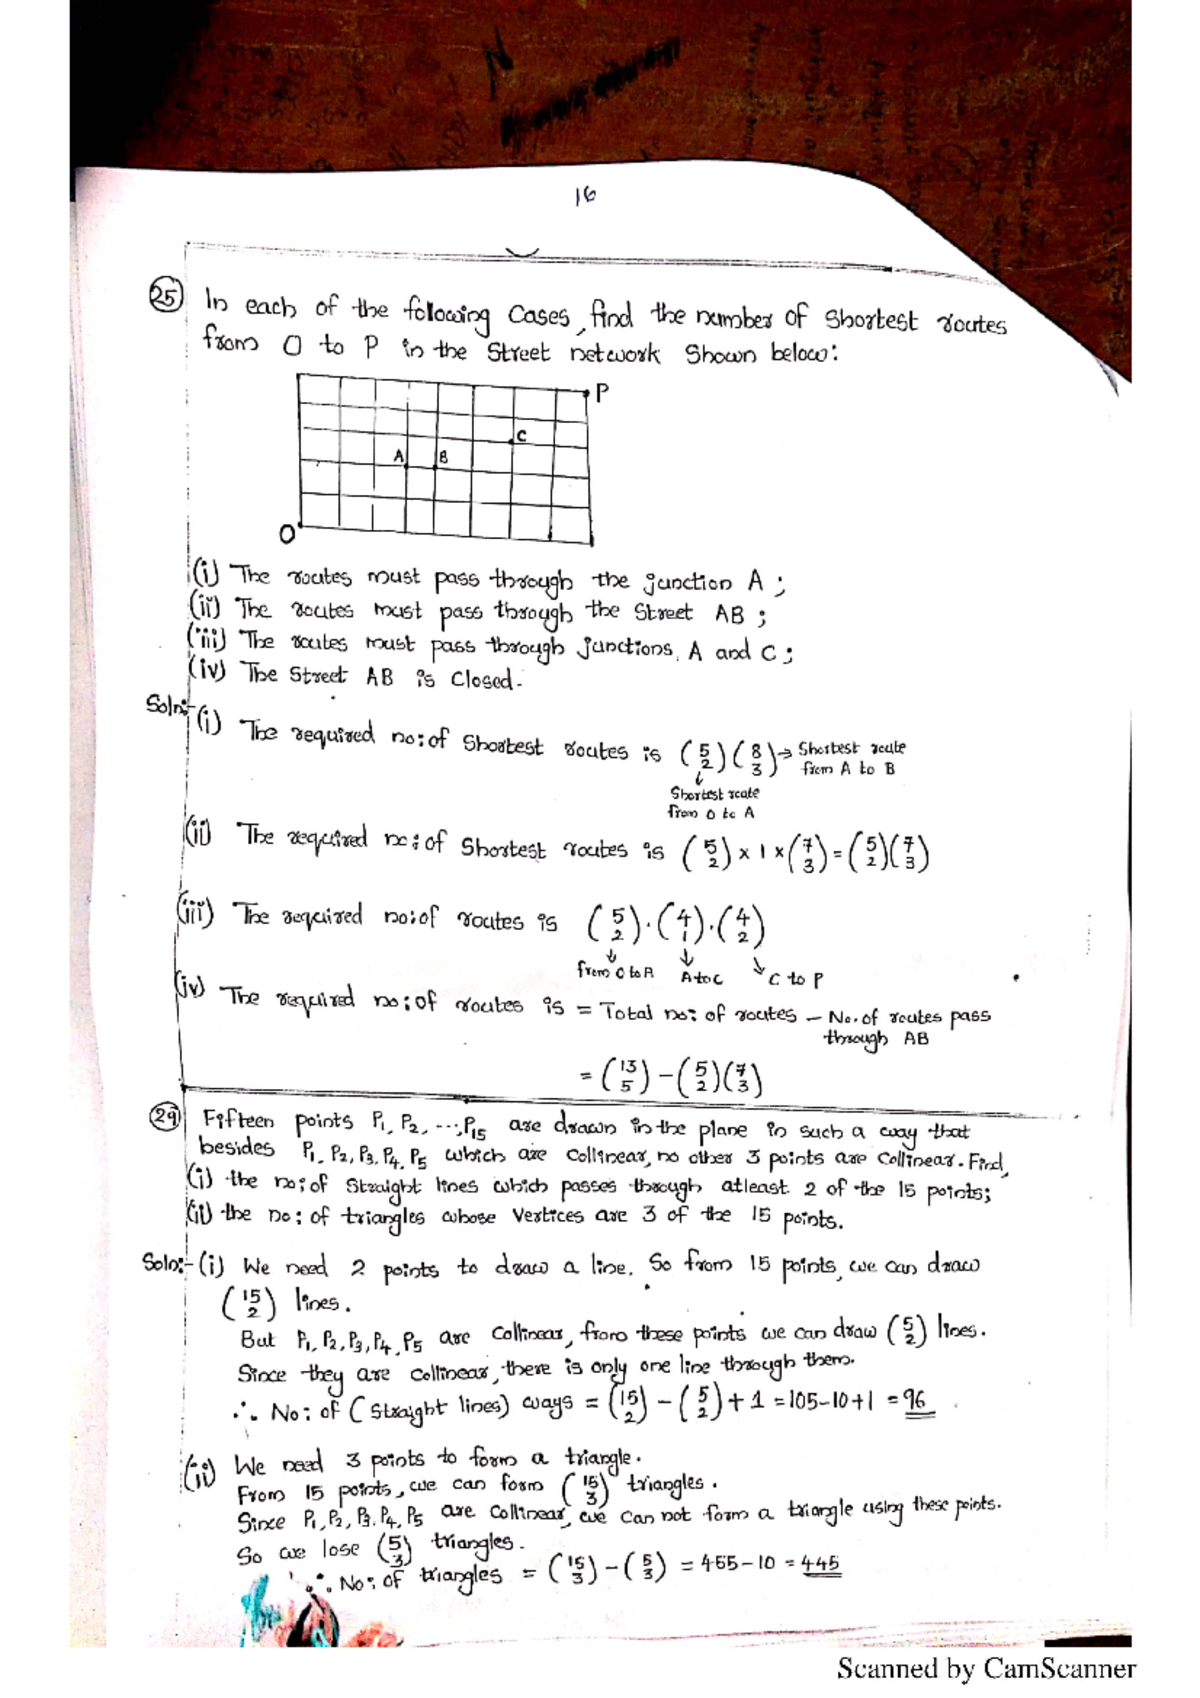 16
25 In each of the following Cases, find the number of Shortest routes
from O to P in the Street network Shown below:
P
C
A B
O
(i) The routes must pass through the junction A ;
(ii) The routes must pass through the Street AB ;
(iii) The routes must pass through junctions, A and C ;
(iv) The Street AB is Closed.
Soln:- (i) The required no: of Shortest routes is (5 2) (8 3) → Shortest route from A to B
↓
Shortest route
from O to A
(ii) The required no: of Shortest routes is (5 2) × 1 × (7 3) = (5 2)(7 3)
(iii) The required no: of routes is (5 2) · (4 1) · (4 2)
↓ ↓ ↘
from O to A A to C C to P
(iv) The required no: of routes is = Total no: of routes – No. of routes pass
through AB
= (13 5) – (5 2)(7 3)
29 Fifteen points P1, P2, ..., P15 are drawn in the plane in such a way that
besides P1, P2, P3, P4, P5 which are collinear, no other 3 points are Collinear. Find,
(i) the no: of Straight lines which passes through atleast 2 of the 15 points;
(ii) the no: of triangles whose Vertices are 3 of the 15 points.
Soln:- (i) We need 2 points to draw a line. So from 15 points, we can draw
(15 2) lines.
But P1, P2, P3, P4, P5 are Collinear, from these points we can draw (5 2) lines.
Since they are collinear, there is only one line through them.
∴ No: of (Straight lines) ways = (15 2) – (5 2) + 1 = 105–10+1 = 96
(ii) We need 3 points to form a triangle.
From 15 points, we can form (15 3) triangles.
Since P1, P2, P3, P4, P5 are Collinear, we can not form a triangle using these points.
So we lose (5 3) triangles.
∴ No: of triangles = (15 3) – (5 3) = 455–10 = 445
Scanned by CamScanner